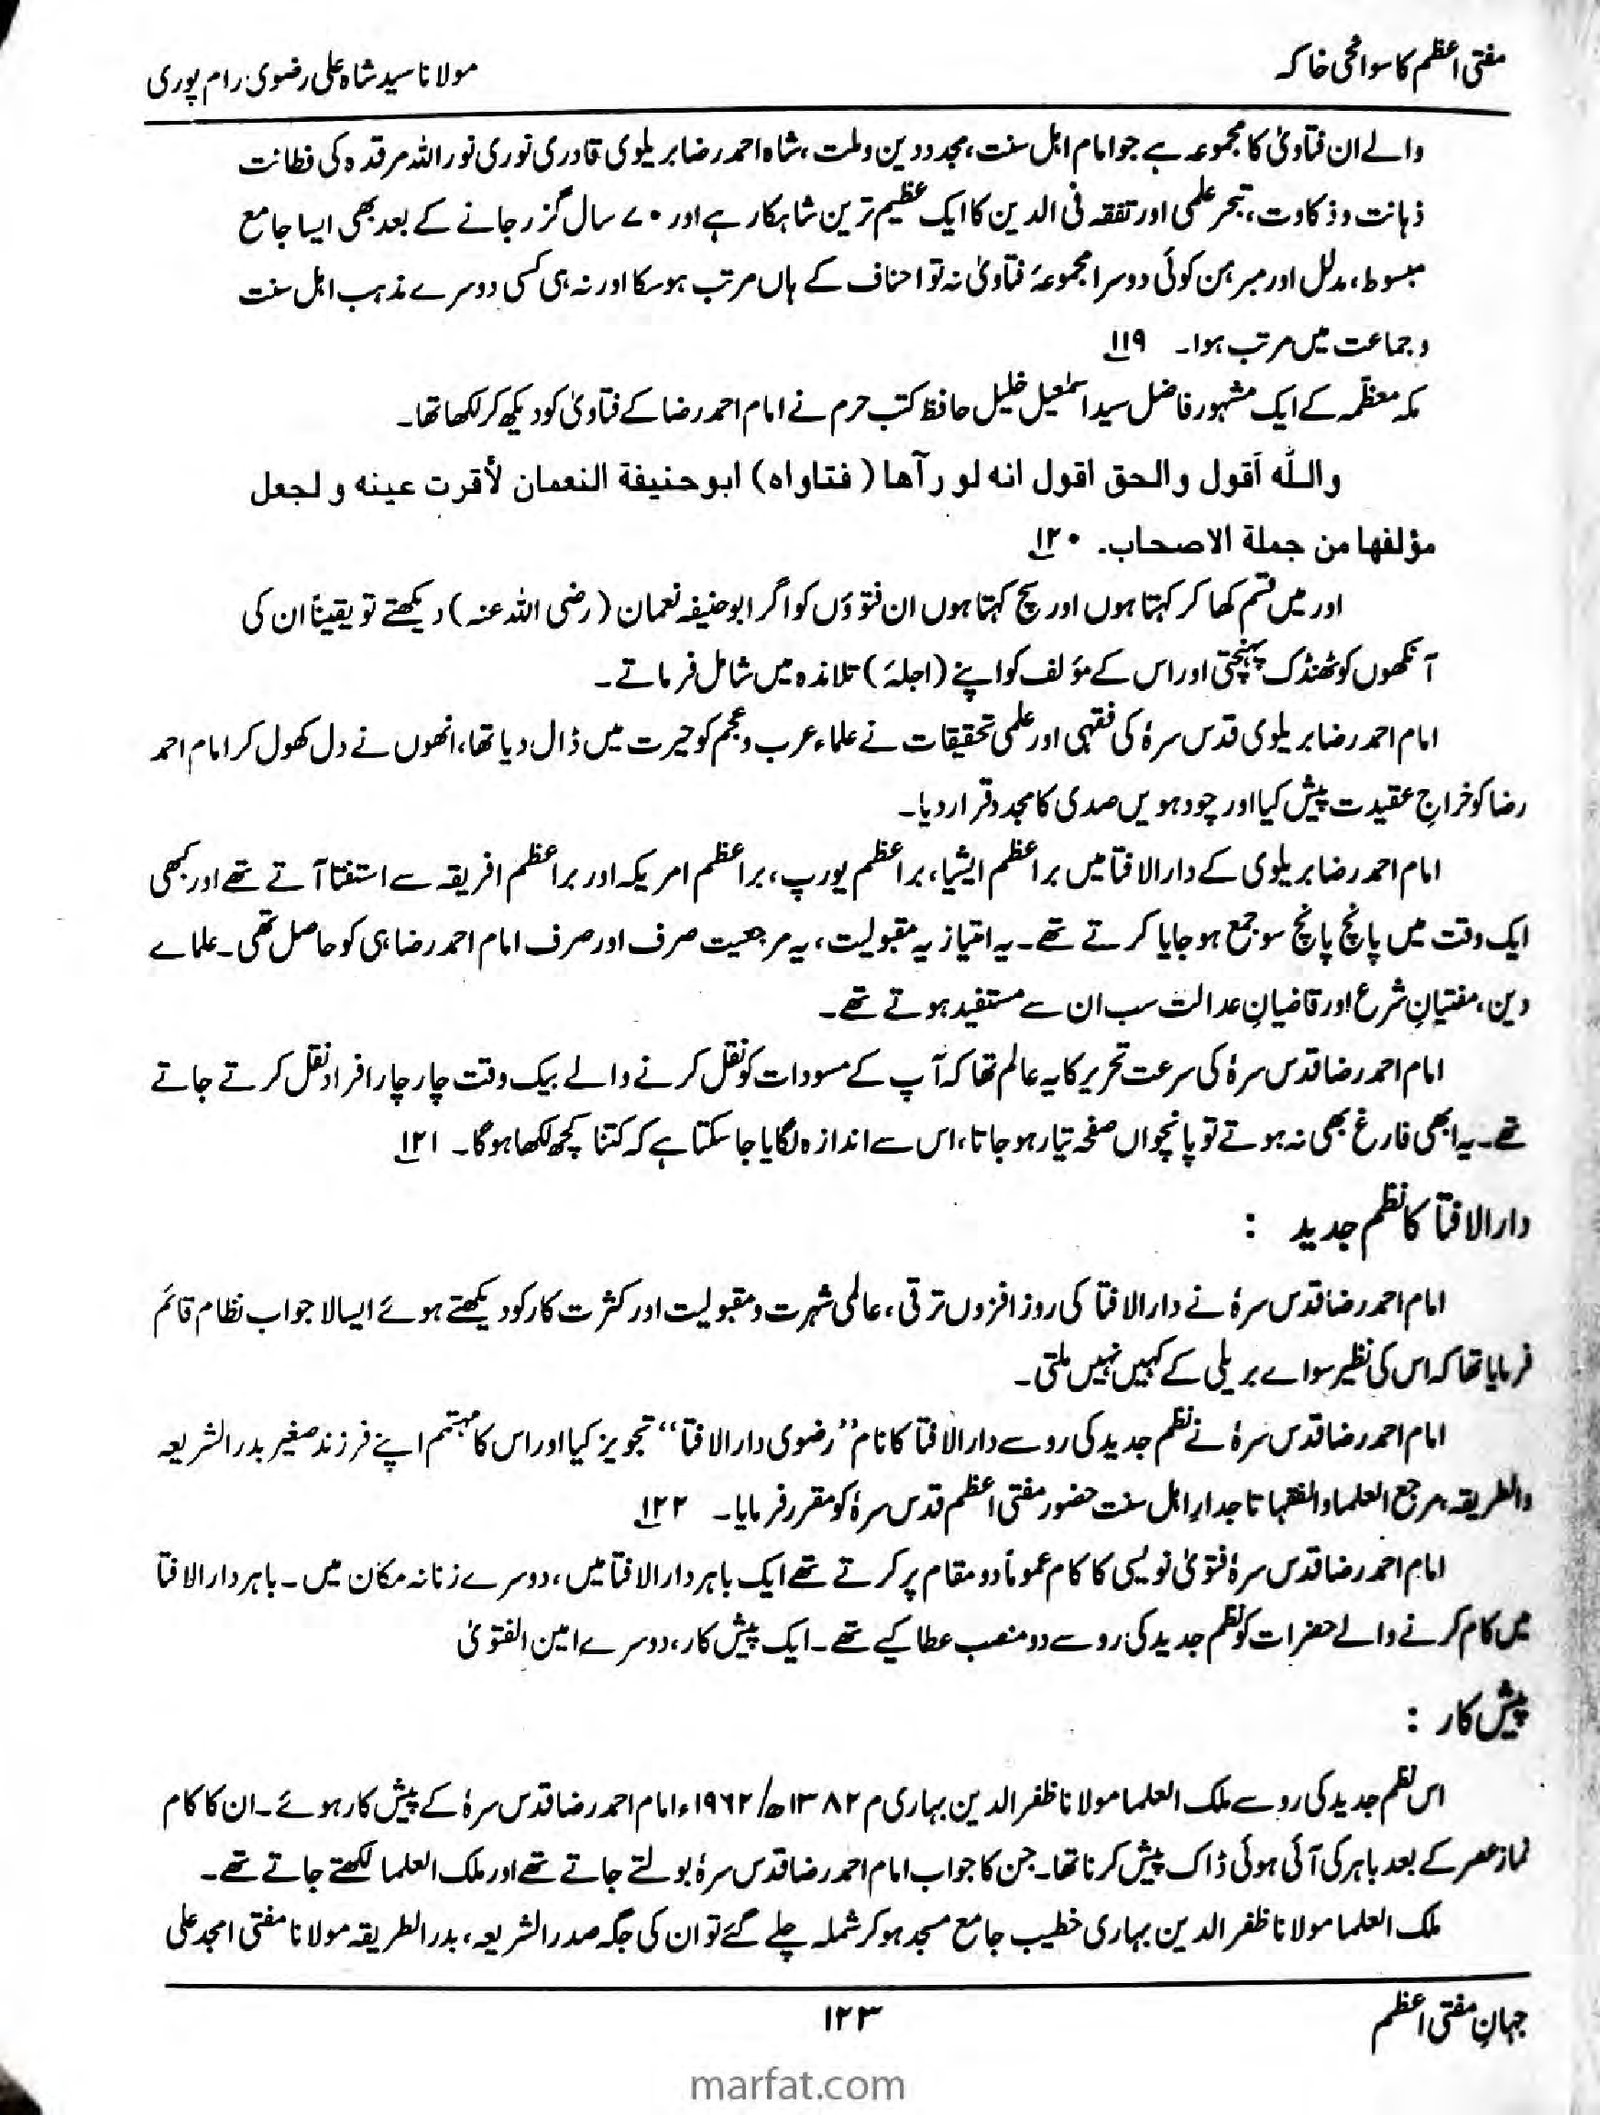 مفتی اعظم کا سوانحی خاکہ
مولانا سید شاہد علی رضوی رام پوری
والے ان فتاویٰ کا مجموعہ ہے جو امام اہل سنت، مجدد دین و ملت، شاہ احمد رضا بریلوی قادری نوری نور اللہ مرقدہ کی فطانت
ذہانت و ذکاوت، تبحر علمی اور تفقہ فی الدین کا ایک عظیم ترین شاہکار ہے اور ۷۰ سال گزر جانے کے بعد بھی ایسا جامع
مبسوط، مدلل اور مبرہن کوئی دوسرا مجموعۂ فتاویٰ نہ تو احناف کے ہاں مرتب ہو سکا اور نہ ہی کسی دوسرے مذہب اہل سنت
و جماعت میں مرتب ہوا۔ ۱۱۹
مکہ معظمہ کے ایک مشہور فاضل سید اسمٰعیل خلیل حافظ کتب حرم نے امام احمد رضا کے فتاویٰ کو دیکھ کر لکھا تھا۔
واللّٰه أقول والحق اقول انه لو رآها (فتاواه) ابوحنيفة النعمان لأقرت عينه و لجعل
مؤلفها من جملة الاصحاب. ۱۲۰
اور میں قسم کھا کر کہتا ہوں اور سچ کہتا ہوں ان فتوؤں کو اگر ابوحنیفہ نعمان (رضی اللہ عنہ) دیکھتے تو یقیناً ان کی
آنکھوں کو ٹھنڈک پہنچتی اور اس کے مؤلف کو اپنے (اجلۂ) تلامذہ میں شامل فرماتے۔
امام احمد رضا بریلوی قدس سرہٗ کی فقہی اور علمی تحقیقات نے علماء عرب و عجم کو حیرت میں ڈال دیا تھا، انھوں نے دل کھول کر امام احمد
رضا کو خراجِ عقیدت پیش کیا اور چودہویں صدی کا مجدد قرار دیا۔
امام احمد رضا بریلوی کے دارالافتا میں براعظم ایشیا، براعظم یورپ، براعظم امریکہ اور براعظم افریقہ سے استفتا آتے تھے اور کبھی
ایک وقت میں پانچ پانچ سو جمع ہو جایا کرتے تھے۔ یہ امتیاز یہ مقبولیت، یہ مرجعیت صرف اور صرف امام احمد رضا ہی کو حاصل تھی۔ علماے
دین، مفتیانِ شرع اور قاضیانِ عدالت سب ان سے مستفید ہوتے تھے۔
امام احمد رضا قدس سرہٗ کی سرعت تحریر کا یہ عالم تھا کہ آپ کے مسودات کو نقل کرنے والے بیک وقت چار چار افراد نقل کرتے جاتے
تھے۔ یہ ابھی فارغ بھی نہ ہوتے تو پانچواں صفحہ تیار ہو جاتا، اس سے اندازہ لگایا جا سکتا ہے کہ کتنا کچھ لکھا ہوگا۔ ۱۲۱
دارالافتا کا نظم جدید :
امام احمد رضا قدس سرہٗ نے دارالافتا کی روز افزوں ترقی، عالمی شہرت و مقبولیت اور کثرت کار کو دیکھتے ہوئے ایسا لاجواب نظام قائم
فرمایا تھا کہ اس کی نظیر سوائے بریلی کے کہیں نہیں ملتی۔
امام احمد رضا قدس سرہٗ نے نظم جدید کی رو سے دارالافتا کا نام ”رضوی دارالافتا“ تجویز کیا اور اس کا مہتمم اپنے فرزند صغیر بدر الشریعہ
والطریقہ، مرجع العلما والفقہا تاجدارِ اہل سنت حضور مفتی اعظم قدس سرہٗ کو مقرر فرمایا۔ ۱۲۲
امام احمد رضا قدس سرہٗ فتویٰ نویسی کا کام عموماً دو مقام پر کرتے تھے ایک باہر دارالافتا میں، دوسرے زنانہ مکان میں۔ باہر دارالافتا
میں کام کرنے والے حضرات کو نظم جدید کی رو سے دو منصب عطا کیے تھے۔ ایک پیش کار، دوسرے امین الفتویٰ
پیش کار :
اس نظم جدید کی رو سے ملک العلما مولانا ظفر الدین بہاری م ۱۳۸۲ھ/۱۹۶۲ء امام احمد رضا قدس سرہٗ کے پیش کار ہوئے۔ ان کا کام
نماز عصر کے بعد باہر کی آئی ہوئی ڈاک پیش کرنا تھا۔ جن کا جواب امام احمد رضا قدس سرہٗ بولتے جاتے تھے اور ملک العلما لکھتے جاتے تھے۔
ملک العلما مولانا ظفر الدین بہاری خطیب جامع مسجد ہو کر شملہ چلے گئے تو ان کی جگہ صدر الشریعہ، بدر الطریقہ مولانا مفتی امجد علی
جہانِ مفتی اعظم
۱۲۳
marfat.com